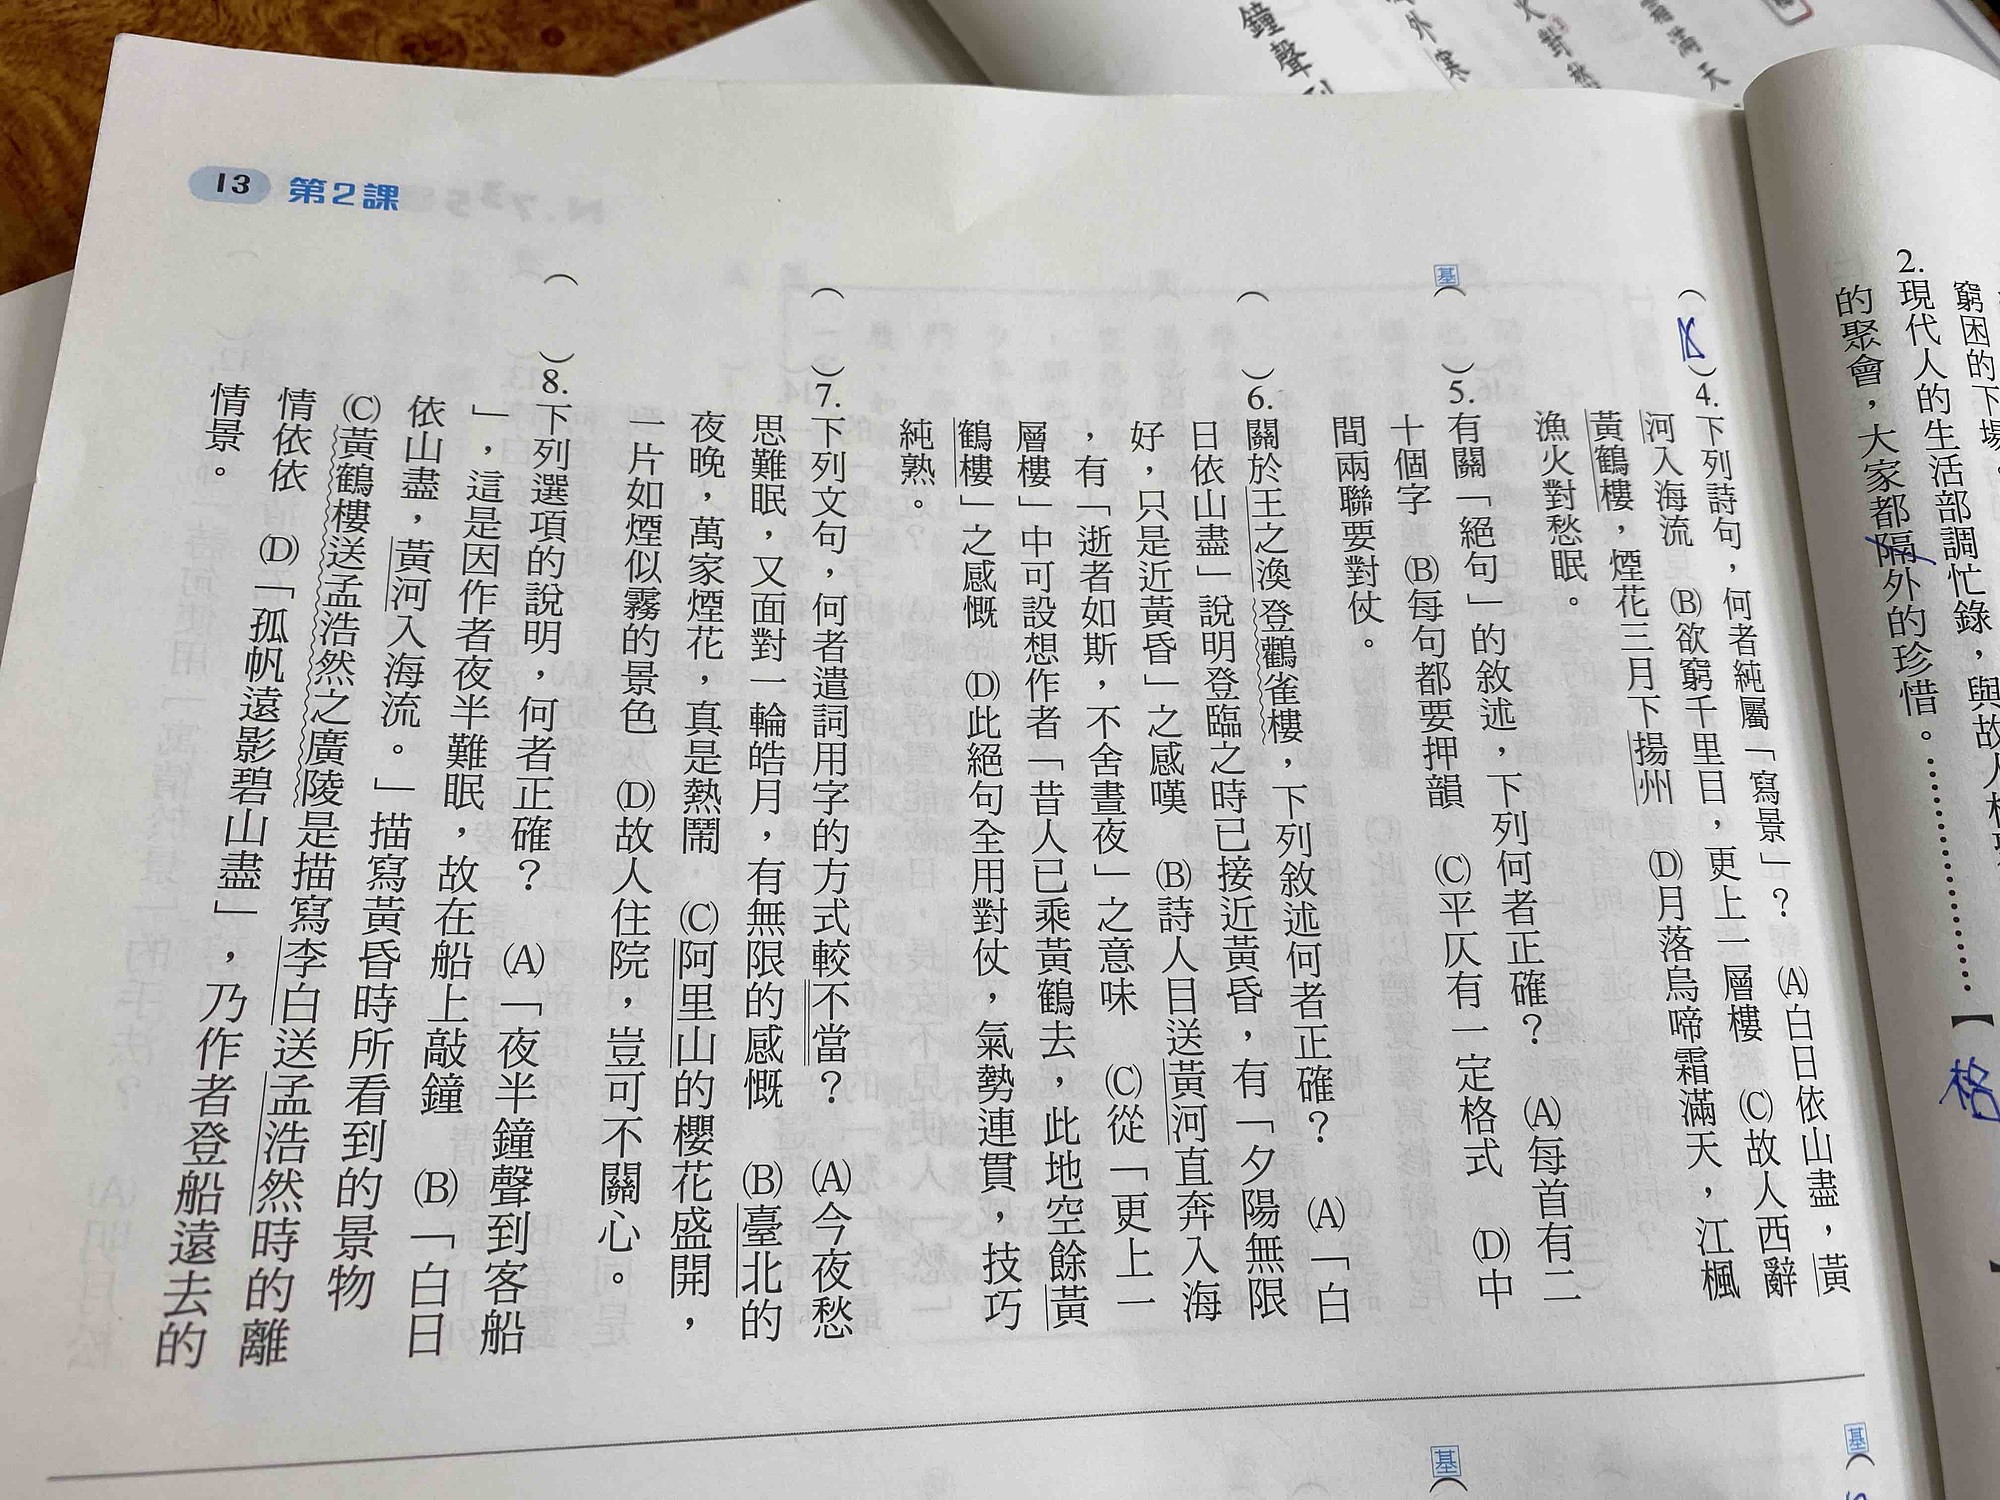 鐘聲
外寒
火對愁
霜滿天
窮困的下場。
2.現代人的生活部調忙錄，與故人
的聚會，大家都隔外的珍惜。…………………【
格
(A)4.下列詩句，何者純屬「寫景」？　(A)白日依山盡，黃
河入海流　(B)欲窮千里日，更上一層樓　(C)故人西辭
黃鶴樓，煙花三月下揚州　(D)月落烏啼霜滿天，江楓
漁火對愁眠。
基(　)5.有關「絕句」的敘述，下列何者正確？　(A)每首有二
十個字　(B)每句都要押韻　(C)平仄有一定格式　(D)中
間兩聯要對仗。
(　)6.關於王之渙登鸛雀樓，下列敘述何者正確？　(A)「白
日依山盡」說明登臨之時已接近黃昏，有「夕陽無限
好，只是近黃昏」之感嘆　(B)詩人目送黃河直奔入海
，有「逝者如斯，不舍晝夜」之意味　(C)從「更上一
層樓」中可設想作者「昔人已乘黃鶴去，此地空餘黃
鶴樓」之感慨　(D)此絕句全用對仗，氣勢連貫，技巧
純熟。
(　)7.下列文句，何者遣詞用字的方式較不當？　(A)今夜愁
思難眠，又面對一輪皓月，有無限的感慨　(B)臺北的
夜晚，萬家煙花，真是熱鬧　(C)阿里山的櫻花盛開，
一片如煙似霧的景色　(D)故人住院，豈可不關心。
(　)8.下列選項的說明，何者正確？　(A)「夜半鐘聲到客船
」，這是因作者夜半難眠，故在船上敲鐘　(B)「白日
依山盡，黃河入海流。」描寫黃昏時所看到的景物
(C)黃鶴樓送孟浩然之廣陵是描寫李白送孟浩然時的離
情依依　(D)「孤帆遠影碧山盡」，乃作者登船遠去的
情景。
13 第2課
基(
基(